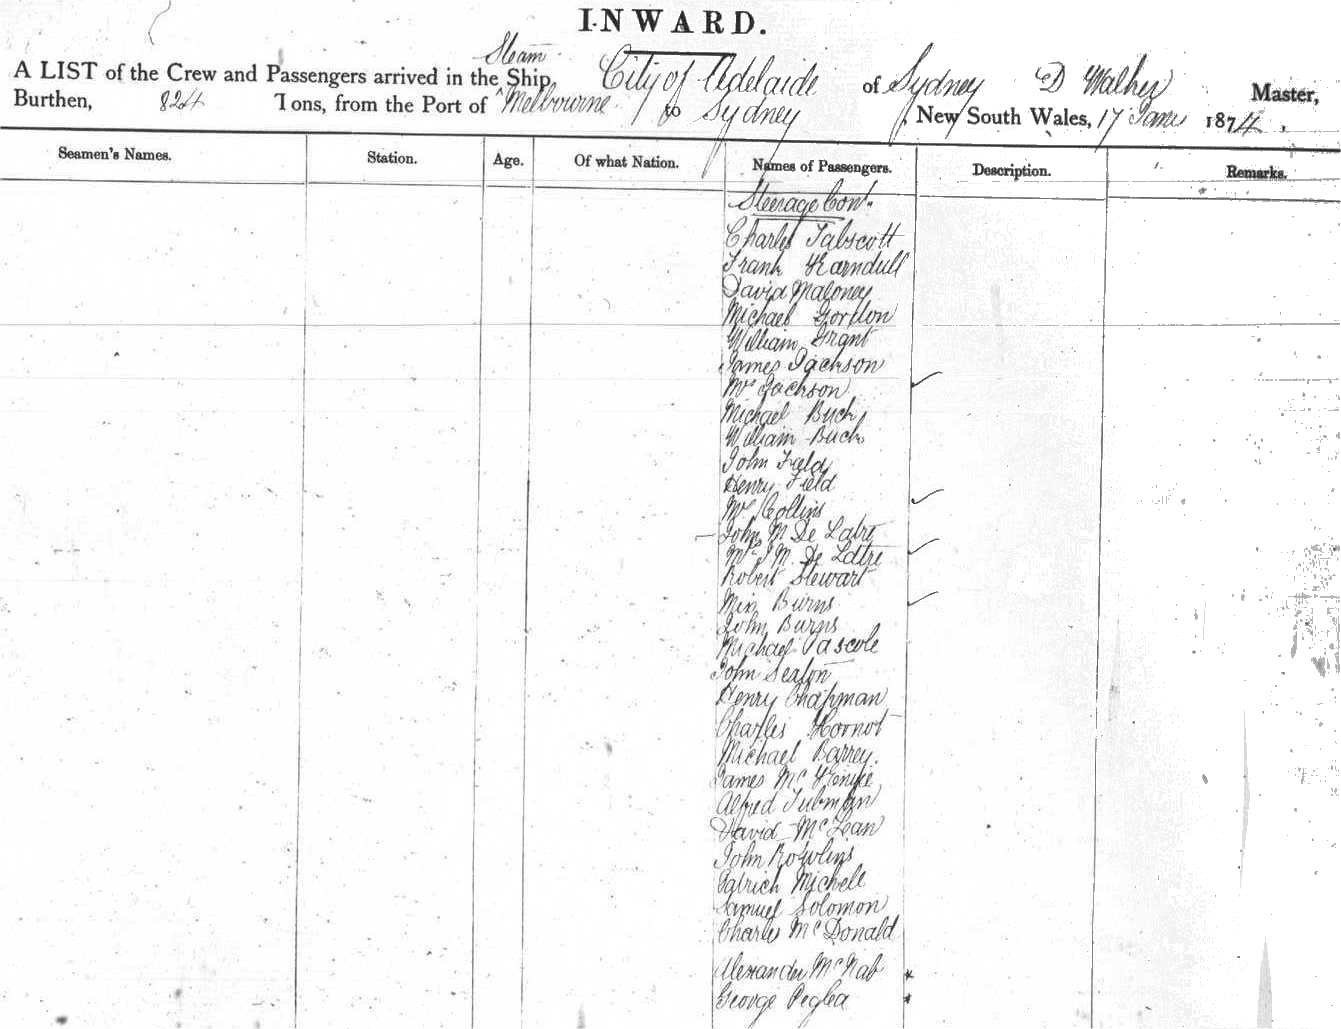 INWARD.
Steam
A LIST of the Crew and Passengers arrived in the Ship, City of Adelaide of Sydney D Walker Master,
Burthen, 824 Tons, from the Port of Melbourne to Sydney, New South Wales, 17 June 1874,
Seamen's Names. Station. Age. Of what Nation. Names of Passengers. Description. Remarks.
Steerage Cont.
Charles Tabscott
Frank
David Maloney
Michael Gordon
William Grant
James Jackson
Mrs Jackson
Michael Buck
William Buck
John Field
Henry Field
Mrs Collins
John M De Latre
Mrs J M De Latre
Robert Stewart
Miss Burns
John Burns
Michael Pascole
John Seaton
Henry Chapman
Charles Hornot
Michael Barrey
James Mc
Alfred Tubman
David McLean
John Rowlins
Patrick Michell
Samuel Solomon
Charles McDonald
Alexander McNab *
George Peglea *